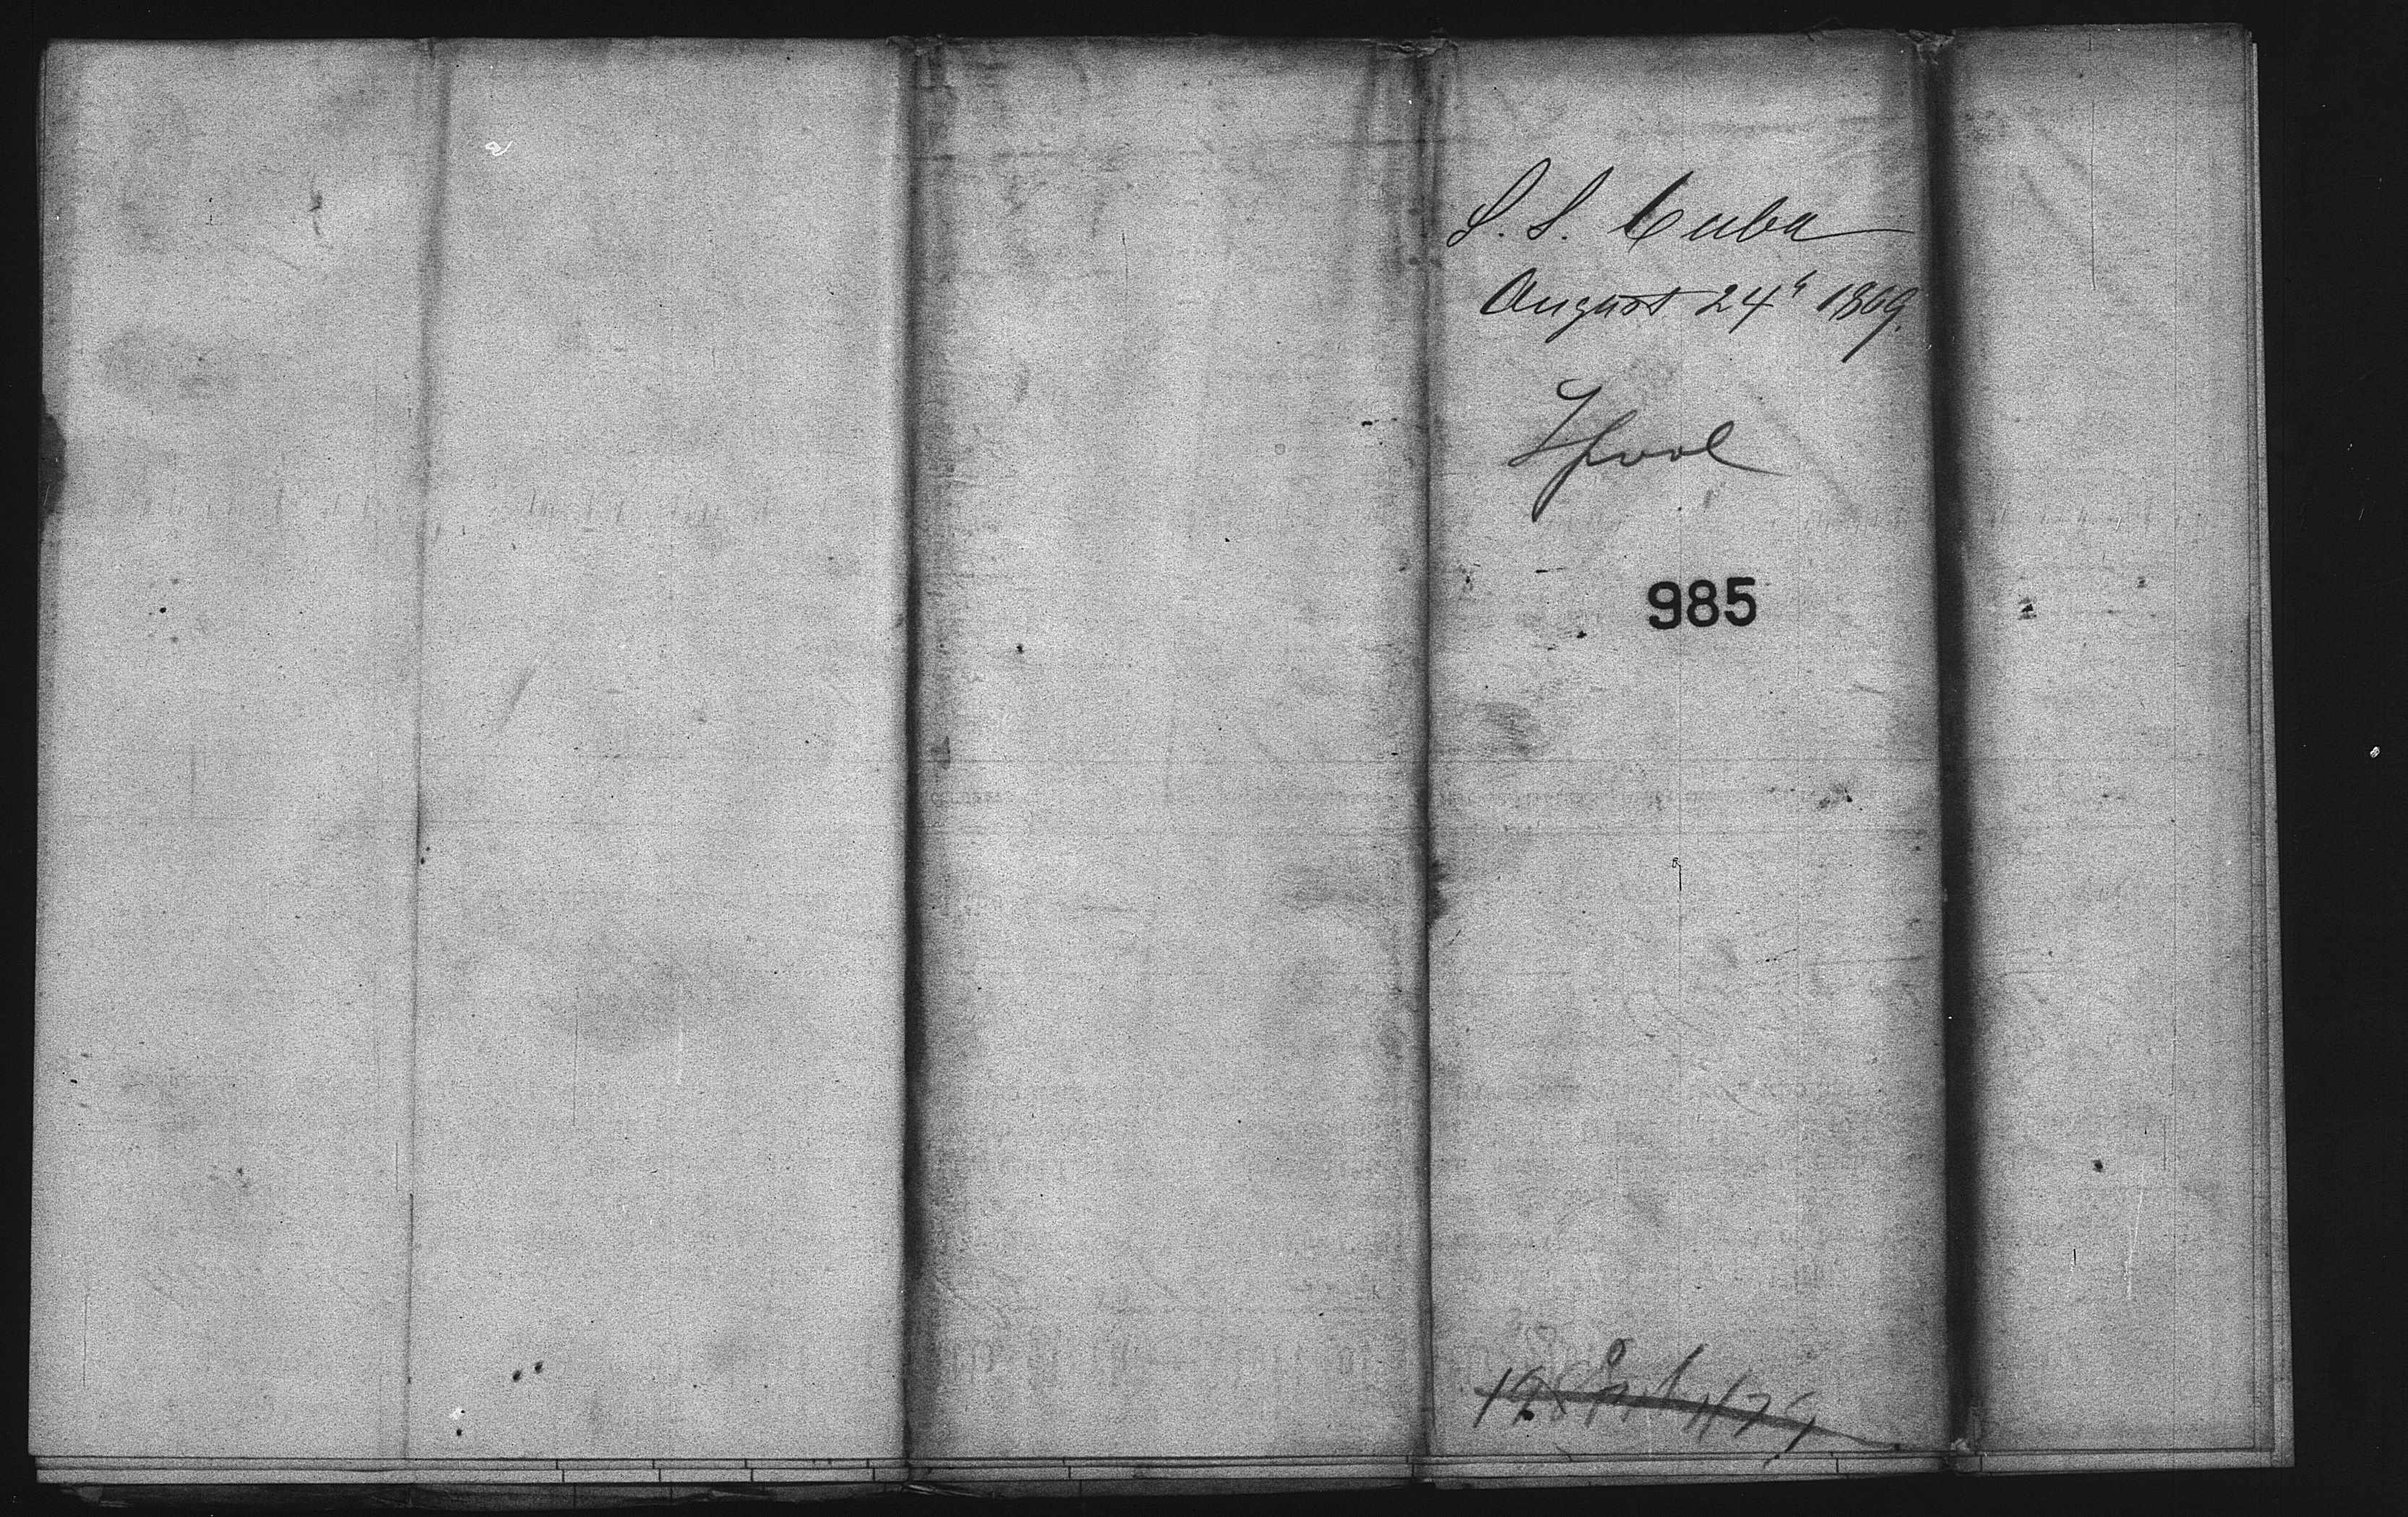 S. S. Cuba
August 24" 1869.
Lpool
985